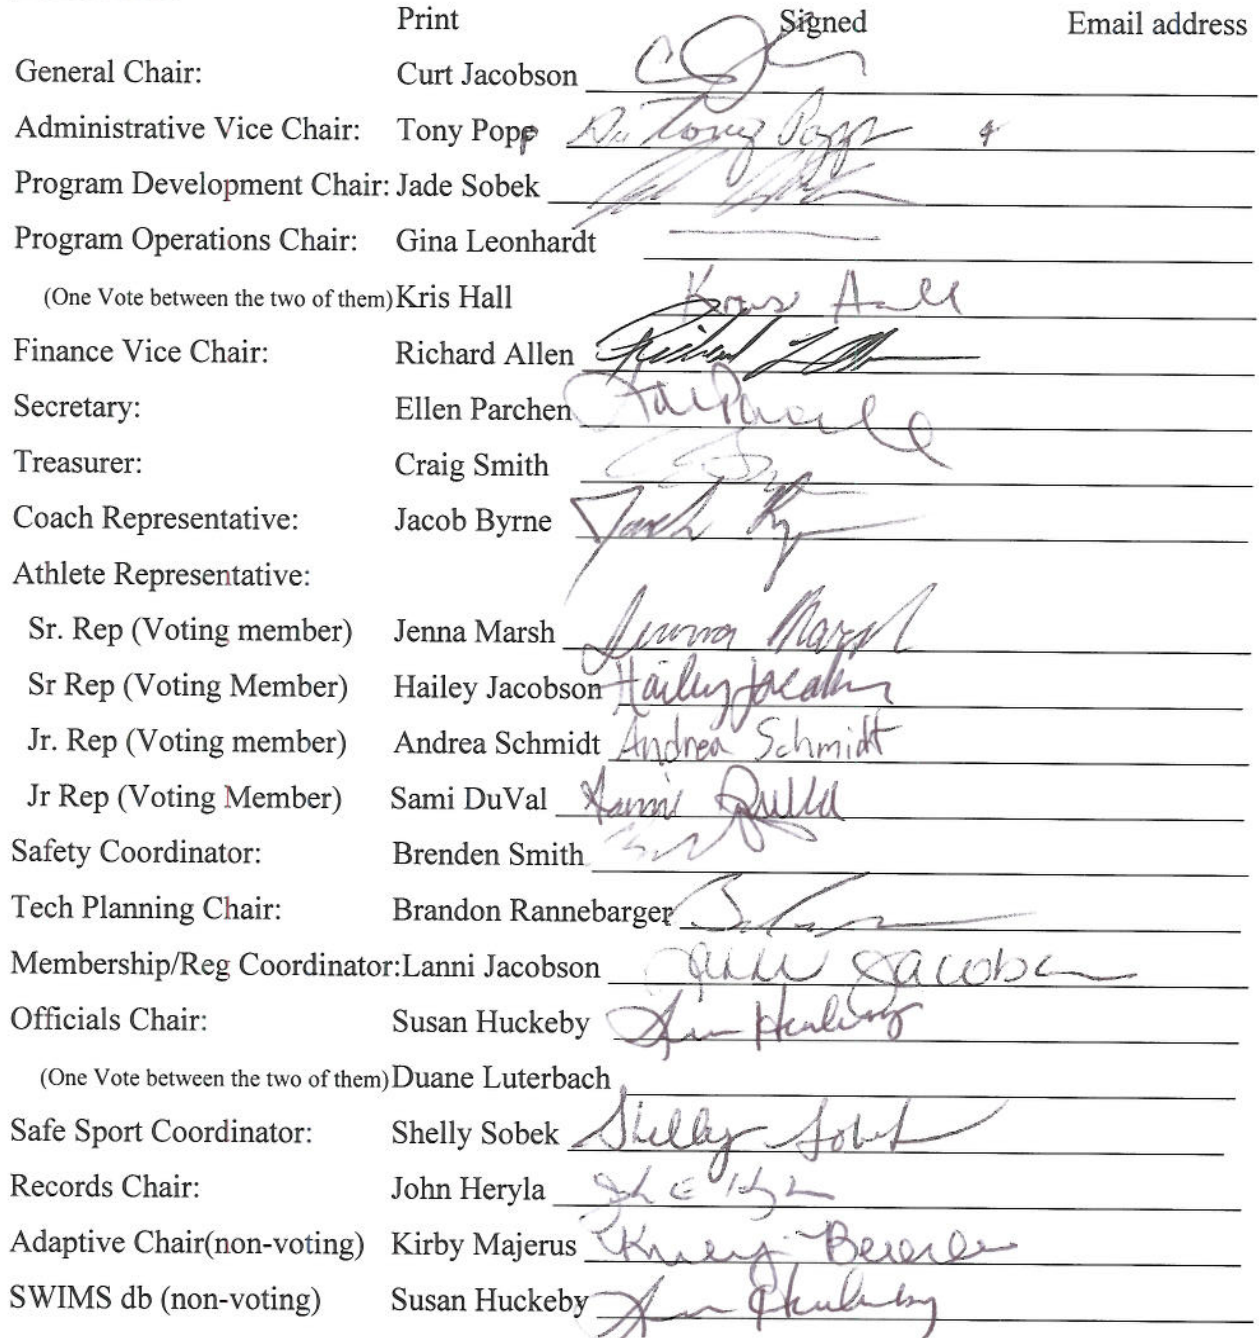 Print Signed Email address
General Chair: Curt Jacobson
Administrative Vice Chair: Tony Popp Tony Popp
Program Development Chair: Jade Sobek
Program Operations Chair: Gina Leonhardt
(One Vote between the two of them) Kris Hall Kris Hall
Finance Vice Chair: Richard Allen Richard
Secretary: Ellen Parchen
Treasurer: Craig Smith
Coach Representative: Jacob Byrne
Athlete Representative:
Sr. Rep (Voting member) Jenna Marsh Jenna Marsh
Sr Rep (Voting Member) Hailey Jacobson Hailey Jacobson
Jr. Rep (Voting member) Andrea Schmidt Andrea Schmidt
Jr Rep (Voting Member) Sami DuVal Sami DuVal
Safety Coordinator: Brenden Smith
Tech Planning Chair: Brandon Rannebarger
Membership/Reg Coordinator: Lanni Jacobson Jacobson
Officials Chair: Susan Huckeby
(One Vote between the two of them) Duane Luterbach
Safe Sport Coordinator: Shelly Sobek Shelly Sobek
Records Chair: John Heryla
Adaptive Chair(non-voting) Kirby Majerus
SWIMS db (non-voting) Susan Huckeby